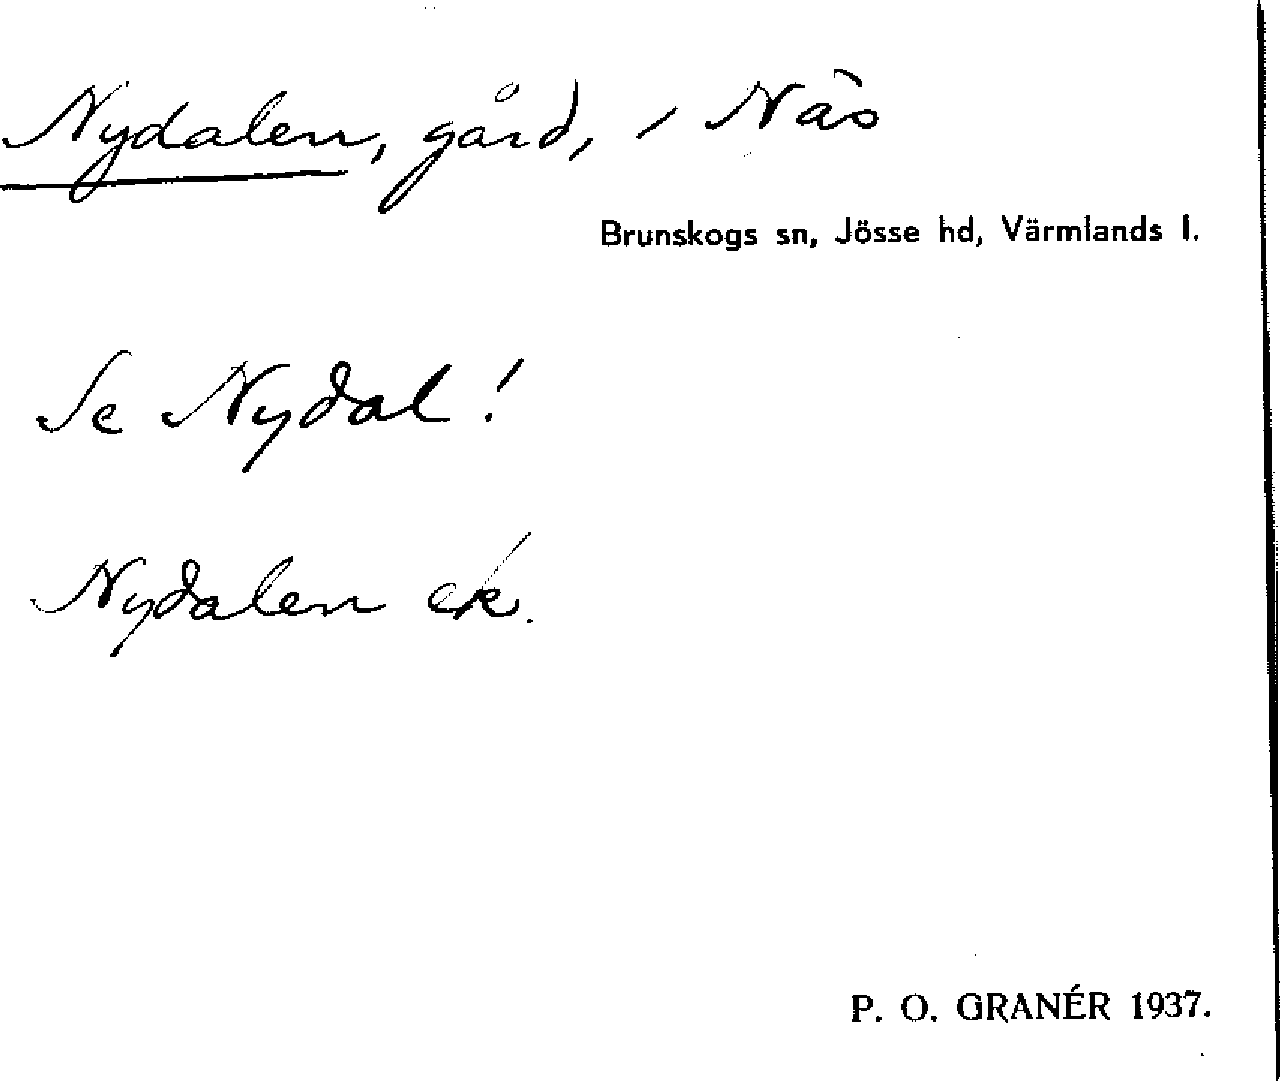 Nydalen, gård, i Näs
Brunskogs sn, Jösse hd, Värmlands l.
Se Nydal!
Nydalen ek.
P. O. GRANÉR 1937.